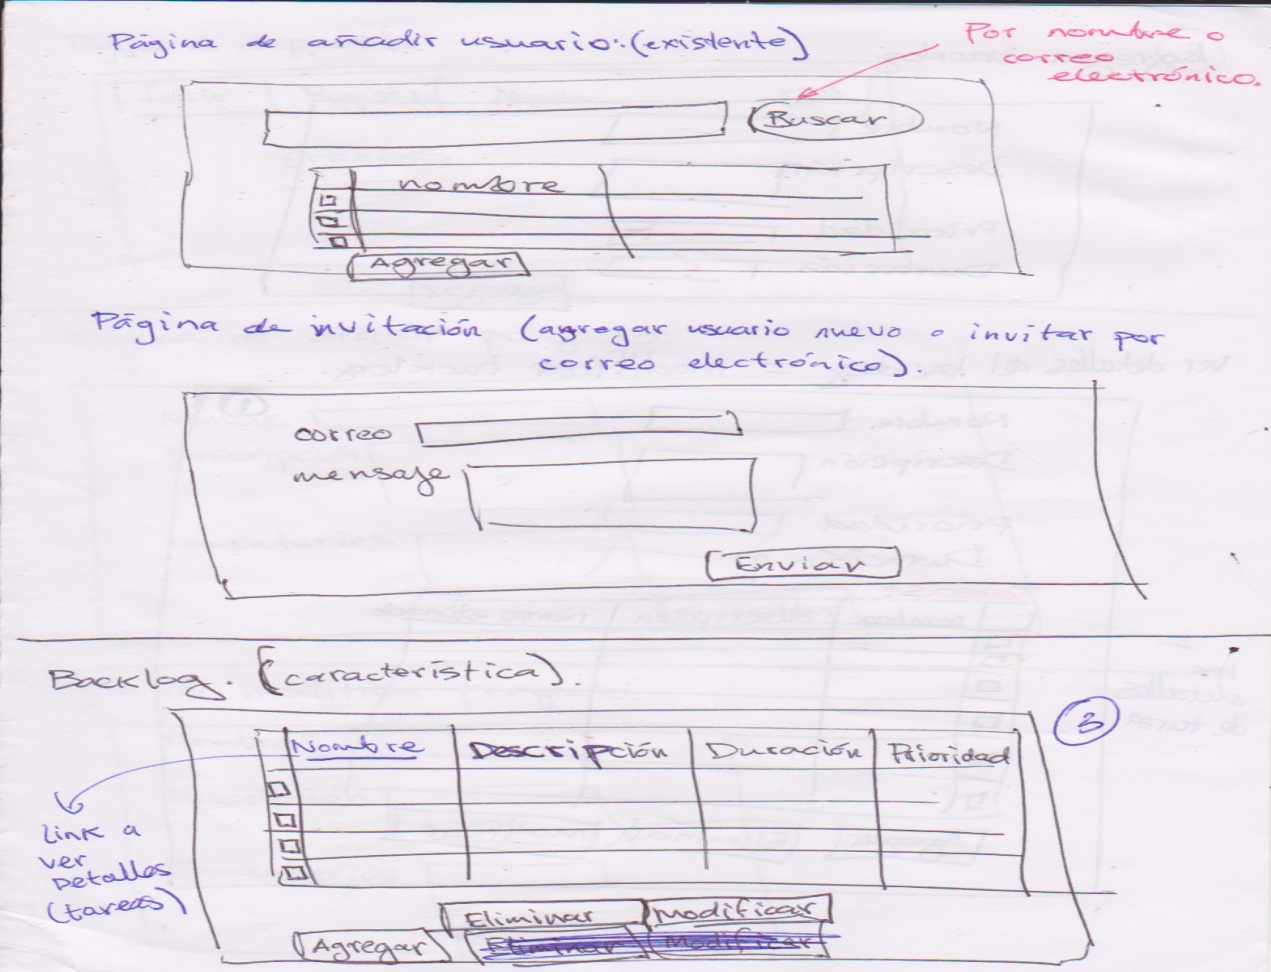 Página de añadir usuario: (existente)
Por nombre o
correo
electrónico.
Buscar
nombre
Agregar
Página de invitación (agregar usuario nuevo o invitar por
correo electrónico).
correo
mensaje
Enviar
Backlog. (característica).
3
Nombre Descripción Duración Prioridad
Link a
ver
Detalles
(tareas)
Eliminar Modificar
Agregar Eliminar Modificar